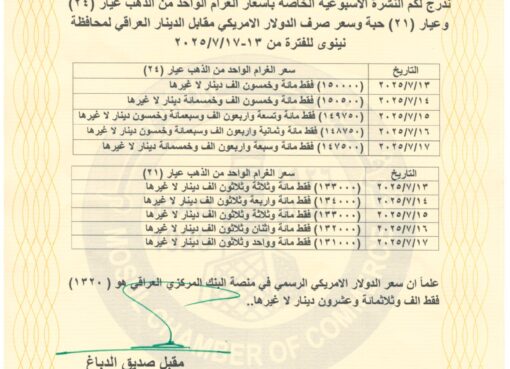 ندرج لكم النشرة الاسبوعية الخاصة بأسعار الغرام الواحد من الذهب عيار (٢٤)
وعيار (٢١) حبة وسعر صرف الدولار الامريكي مقابل الدينار العراقي لمحافظة
نينوى للفترة من ١٣-٢٠٢٥/٧/١٧
التاريخ سعر الغرام الواحد من الذهب عيار (٢٤)
٢٠٢٥/٧/١٣ (١٥٠٠٠٠) فقط مائة وخمسون الف دينار لا غيرها
٢٠٢٥/٧/١٤ (١٥٠٥٠٠) فقط مائة وخمسون الف وخمسمائة دينار لا غيرها
٢٠٢٥/٧/١٥ (١٤٩٧٥٠) فقط مائة وتسعة واربعون الف وسبعمائة وخمسون دينار لا غيرها
٢٠٢٥/٧/١٦ (١٤٨٧٥٠) فقط مائة وثمانية واربعون الف وسبعمائة وخمسون دينار لا غيرها
٢٠٢٥/٧/١٧ (١٤٧٥٠٠) فقط مائة وسبعة واربعون الف وخمسمائة دينار لا غيرها
التاريخ سعر الغرام الواحد من الذهب عيار (٢١)
٢٠٢٥/٧/١٣ (١٣٣٠٠٠) فقط مائة وثلاثة وثلاثون الف دينار لا غيرها
٢٠٢٥/٧/١٤ (١٣٤٠٠٠) فقط مائة واربعة وثلاثون الف دينار لا غيرها
٢٠٢٥/٧/١٥ (١٣٣٠٠٠) فقط مائة وثلاثة وثلاثون الف دينار لا غيرها
٢٠٢٥/٧/١٦ (١٣٢٠٠٠) فقط مائة واثنان وثلاثون الف دينار لا غيرها
٢٠٢٥/٧/١٧ (١٣١٠٠٠) فقط مائة وواحد وثلاثون الف دينار لا غيرها
علماً ان سعر الدولار الامريكي الرسمي في منصة البنك المركزي العراقي هو (١٣٢٠)
فقط الف وثلاثمائة وعشرون دينار لا غيرها..
مقبل صديق الدباغ
CHAMBER OF COM